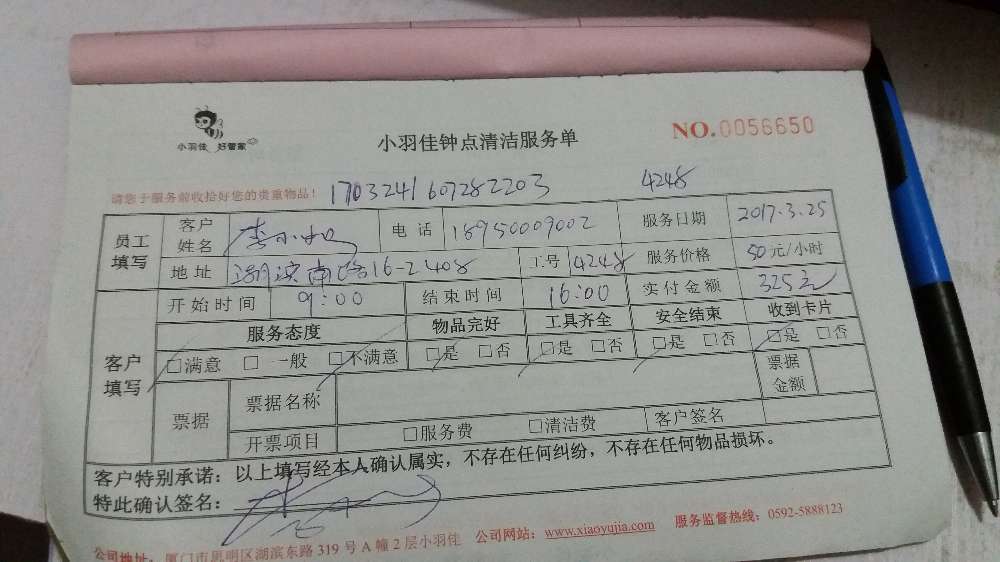 小羽佳 好管家
小羽佳钟点清洁服务单
NO.0056650
请您于服务前收拾好您的贵重物品！ 1703241607282203 4248
员工填写 客户姓名 李小 电话 18950009002 服务日期 2017.3.25
地址 湖滨南路16-2408 工号 4248 服务价格 50元/小时
开始时间 9:00 结束时间 16:00 实付金额 325元
客户填写 服务态度 物品完好 工具齐全 安全结束 收到卡片
□满意 □一般 □不满意 □是 □否 □是 □否 □是 □否 □是 □否
票据 票据名称 票据金额
开票项目 □服务费 □清洁费 客户签名
客户特别承诺：以上填写经本人确认属实，不存在任何纠纷，不存在任何物品损坏。
特此确认签名：
公司地址：厦门市思明区湖滨东路319号A幢2层小羽佳 公司网站：www.xiaoyujia.com 服务监督热线：0592-5888123